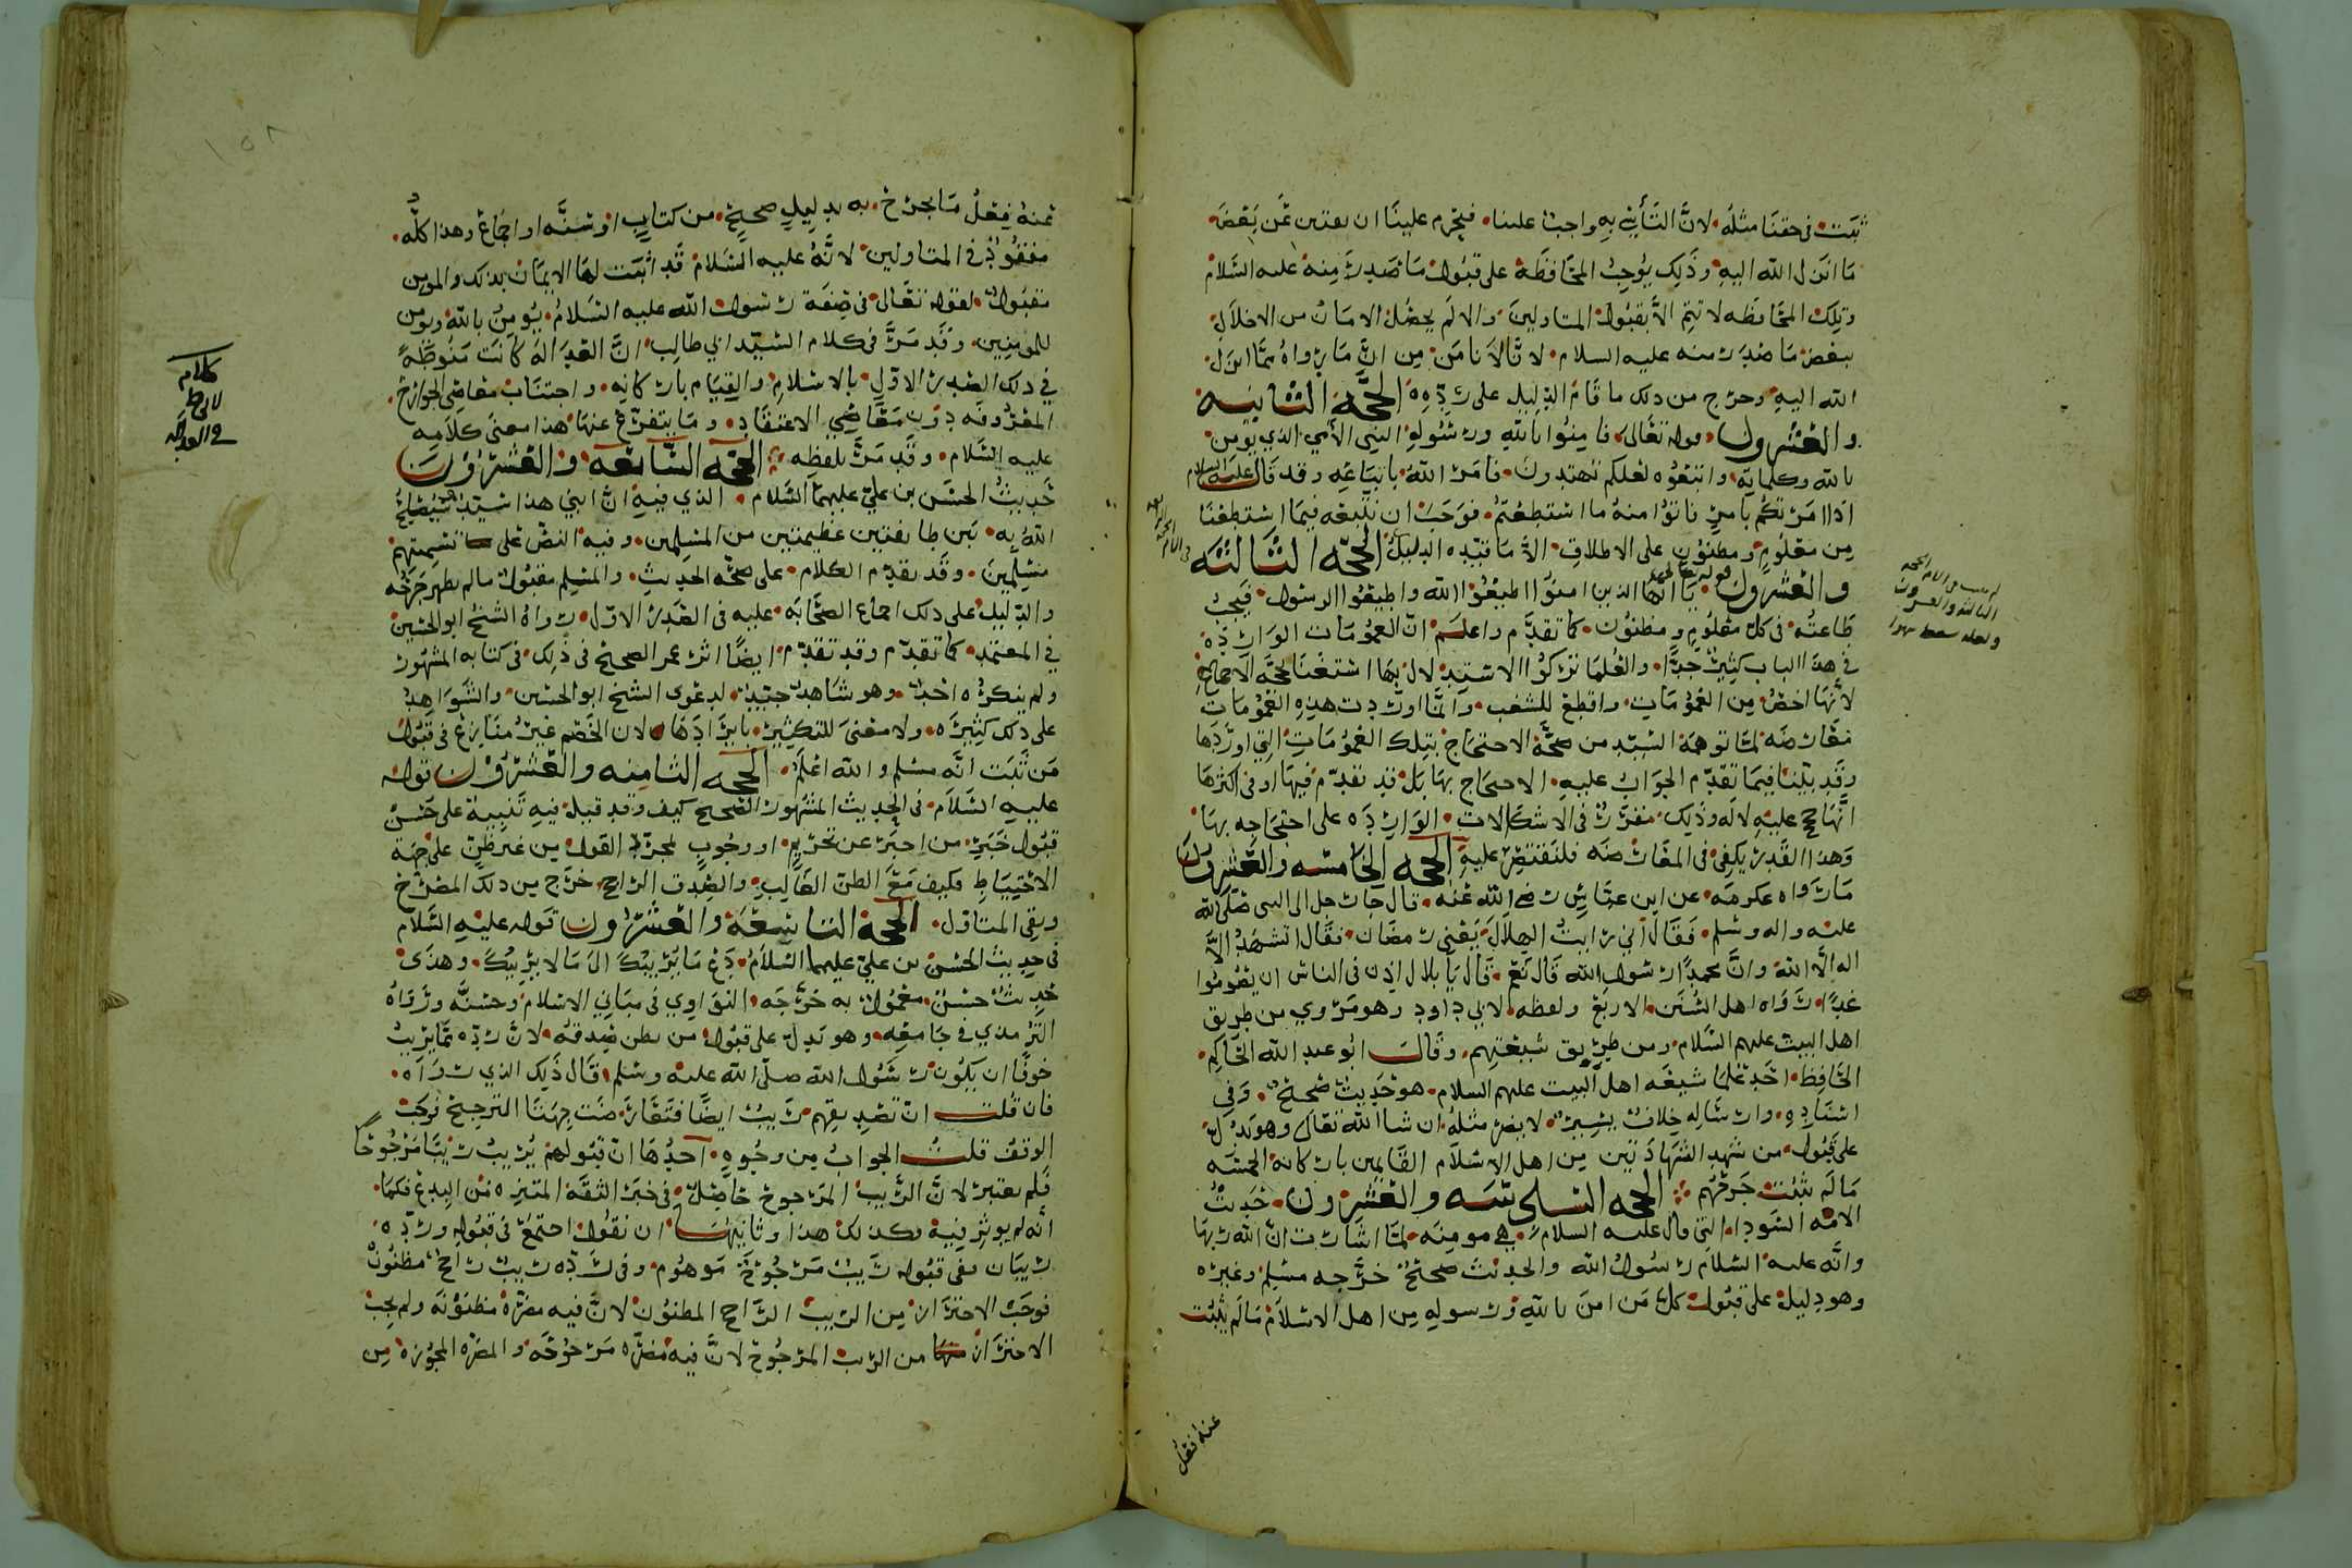 ثبت في حقنا مثله لان التأسي به واجب علينا فيحرم علينا ان نفتتن عن بعض
ما انزل الله اليه وذلك يوجب المحافظة على قبول ما صدر منه عليه السلام
وتلك المحافظه لا تتم الا بقبول المتاولين والا لم يحصل الامان من الاخلال
ببعض ما صدر منه عليه السلام لانا لا نامن من ان ما رواه مما انزل
الله اليه وخرج من ذلك ما قام الدليل على رده الحجة الثانيه
والعشرون قوله تعالى فامنوا بالله ورسوله النبي الامي الذي يومن
بالله وكلماته واتبعوه لعلكم تهتدون فامر الله باتباعه وقد قال عليه السلام
اذا امرتكم بامر فاتوا منه ما استطعتم فوجب ان نتبعه فيما استطعنا
من معلوم ومظنون على الاطلاق الا ما قيده الدليل الحجة الثالثه
والعشرون قوله تعالى يا ايها الذين امنوا اطيعوا الله واطيعوا الرسول فيجب
طاعته في كل معلوم ومظنون كما تقدم واعلم ان العمومات الوارده
في هذا الباب كثير جدا والعلما تركوا الاستدلال بها استغنا بحجة الاجماع
لانها اخص من العمومات واقطع للشغب وانما اوردت هذه العمومات
معارضه لما توهمه السيد من صحة الاحتجاج بتلك العمومات التي اوردها
وقد بينا فيما تقدم الجواب عليه الاحتجاج بها بل قد تقدم فيها او في اكثرها
انها حجج عليه لا له وذلك مقرر في الاشكالات الوارده على احتجاجه بها
وهذا القدر يكفي في المعارضه فلنقتصر عليه الحجه الخامسه والعشرون
ما رواه عكرمه عن ابن عباس رضي الله عنه قال جا رجل الى النبي صلى الله
عليه واله وسلم فقال اني رايت الهلال يعني رمضان فقال اتشهد الا
اله الا الله وان محمدا رسول الله قال نعم قال يا بلال اذن في الناس ان يصوموا
غدا رواه اهل السنن الاربع ولفظه لابي داود وهو مروي من طريق
اهل البيت عليهم السلام ومن طريق شيعتهم وقال ابو عبد الله الحاكم
الحافظ احد علما شيعه اهل البيت عليهم السلام هو حديث صحيح وفي
اسناده وارساله خلاف يسير لا يضر مثله ان شا الله تعالى وهو يدل
على قبول من شهد الشهادتين من اهل الاسلام القايمين باركانه الخمسه
ما لم يثبت جرحهم الحجه السادسه والعشرون حديث
الامه السودا التي قال عليه السلام هي مومنه لما اشارت ان الله ربها
وانه عليه السلام رسول الله والحديث صحيح خرجه مسلم وغيره
وهو دليل على قبول كل من امن بالله ورسوله من اهل الاسلام ما لم يثبت
عنه فعل
عنه فعل ما يجرح به بدليل صحيح من كتاب او سنه او اجماع وهذا كله
مفقود في المتاولين لانه عليه السلام قد اثبت لها الايمان بذلك والمومن
مقبول لقوله تعالى في صفة رسول الله عليه السلام يومن بالله ويومن
للمومنين وقد مر في كلام السيد ابي طالب ان العداله كانت منوطة
في ذلك الصدر الاول بالاسلام والقيام باركانه واجتناب معاصي الجوارح
المعروفه دون معاصي الاعتقاد وما يتفرع عنها هذا معنى كلامه
عليه السلام وقد مر بلفظه الحجه السابعه والعشرون
حديث الحسن بن علي عليهما السلام الذي فيه ان ابني هذا سيد سيصلح
الله به بين طايفتين عظيمتين من المسلمين وفيه النص على تسميتهم
مسلمين وقد تقدم الكلام على صحة الحديث والمسلم مقبول ما لم يظهر جرحه
والدليل على ذلك اجماع الصحابه عليه في الصدر الاول رواه الشيخ ابو الحسين
في المعتمد كما تقدم وقد تقدم ايضا اثر عمر الصحيح في ذلك في كتابه المشهور
ولم ينكره احد وهو شاهد جيد لدعوى الشيخ ابو الحسين والشواهد
على ذلك كثيره ولا معنى للتكثير بايرادها لان الخصم غير منازع في قبول
من ثبت انه مسلم والله اعلم الحجه الثامنه والعشرون قوله
عليه السلام في الحديث المشهور الصحيح كيف وقد قيل فيه تنبيه على حسن
قبول خبر من اخبر عن تحريم او وجوب لمجرد القول من غير ظن على جهة
الاحتياط فكيف مع الظن الغالب والصدق الراجح خرج من ذلك المصرح
وبقي المتاول الحجه التاسعه والعشرون قوله عليه السلام
في حديث الحسن بن علي عليهما السلام دع ما يريبك الى ما لا يريبك وهذا
حديث حسن معمول به خرجه النواوي في مباني الاسلام وحسنه ورواه
الترمذي في جامعه وهو يدل على قبول من يظن صدقه لان رده مما يريب
خوفا ان يكون رسول الله صلى الله عليه وسلم قال ذلك الذي رواه
فان قلت ان تصديقهم ريب ايضا فتعارضت جهتا الترجيح فوجب
الوقف قلت الجواب من وجوه احدها ان قبولهم يريب ريبا مرجوحا
فلم يعتبر لان الريب المرجوح حاصل في خبر الثقه المتنزه من البدع فكما
انه لم يوثر فيه فكذلك هذا وثانيها ان نقول اجتمع في قبوله ورده
ريبان ففي قبوله ريب مرجوح موهوم وفي رده ريب راجح مظنون
فوجب الاحتراز من الريب الراجح المظنون لان فيه مضرة مظنونه ولم يجب
الاحتراز من الريب المرجوح لان فيه مضره مرجوحه والمضره المجوزه من
كلام
لابي ط
في العداله